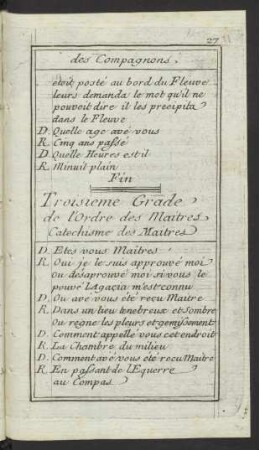 27
des Compagnons.
étoit posté au bord du Fleuve
leurs demanda le mot qu'il ne
pouvoit dire il les precipita
dans le Fleuve
D. Quelle age avé vous
R. Cinq ans passé
D. Quelle Heures est il
R. Minuit plain
Fin
Troisieme Grade
de l'Ordre des Maitres
Catechisme des Maitres
D. Etes vous Maitres
R. Oui je le suis approuvé moi
ou desaprouvé moi si vous le
pouvé Lagacia m'est connu
D. Ou avé vous été recu Maitre
R. Dans un lieu tenebreux et sombre
Ou regne les pleurs et gemissement
D. Comment appellé vous cet endroit
R. La Chambre du milieu
D. Comment avé vous été recu Maitre
R. En passant de l'Equerre
au Compas